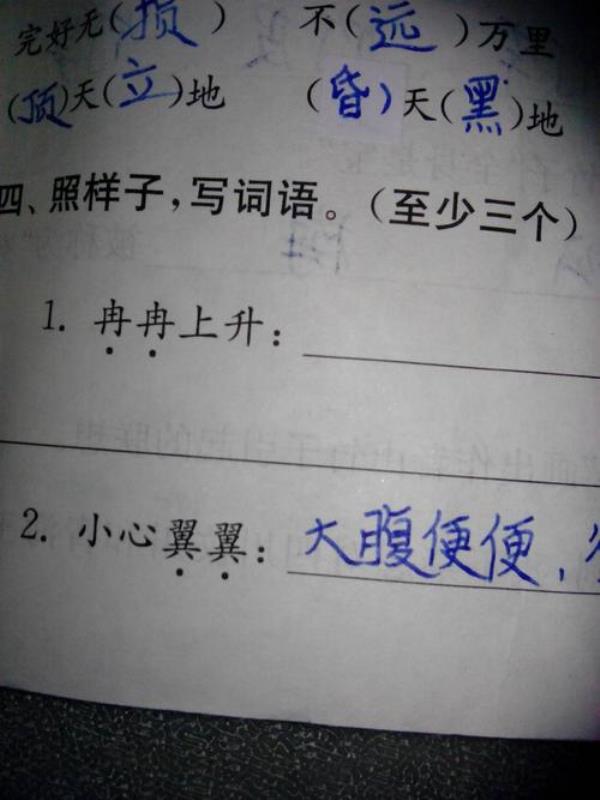 完好无(损) 不(远)万里
(顶)天(立)地 (昏)天(黑)地
四、照样子,写词语。(至少三个)
1. 冉冉上升:
2. 小心翼翼: 大腹便便,